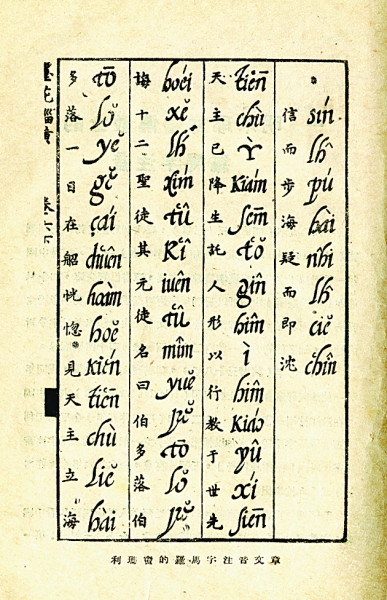 信而步海疑而即沈
sín lh̑ pú hài nhî lh̑ ciĕ chîn
天主已降生託人形以行教于世先
tiēn chù Ỳ Kiám sēm tŏ gîn hîm ì hîm Kiáo yû xí siēn
誨十二聖徒其元徒名曰伯多落伯
hoéi xĕ lh́ xím tû Kî iuên tû mîm yuĕ pĕ tō lŏ pĕ
多落一日在船恍惚見天主立海
tō lŏ yĕ gĕ çái chuên hoàm hoĕ kién tiēn chù liĕ hài
墨苑 緇黃 卷六下
利瑪竇的羅馬字注音文章